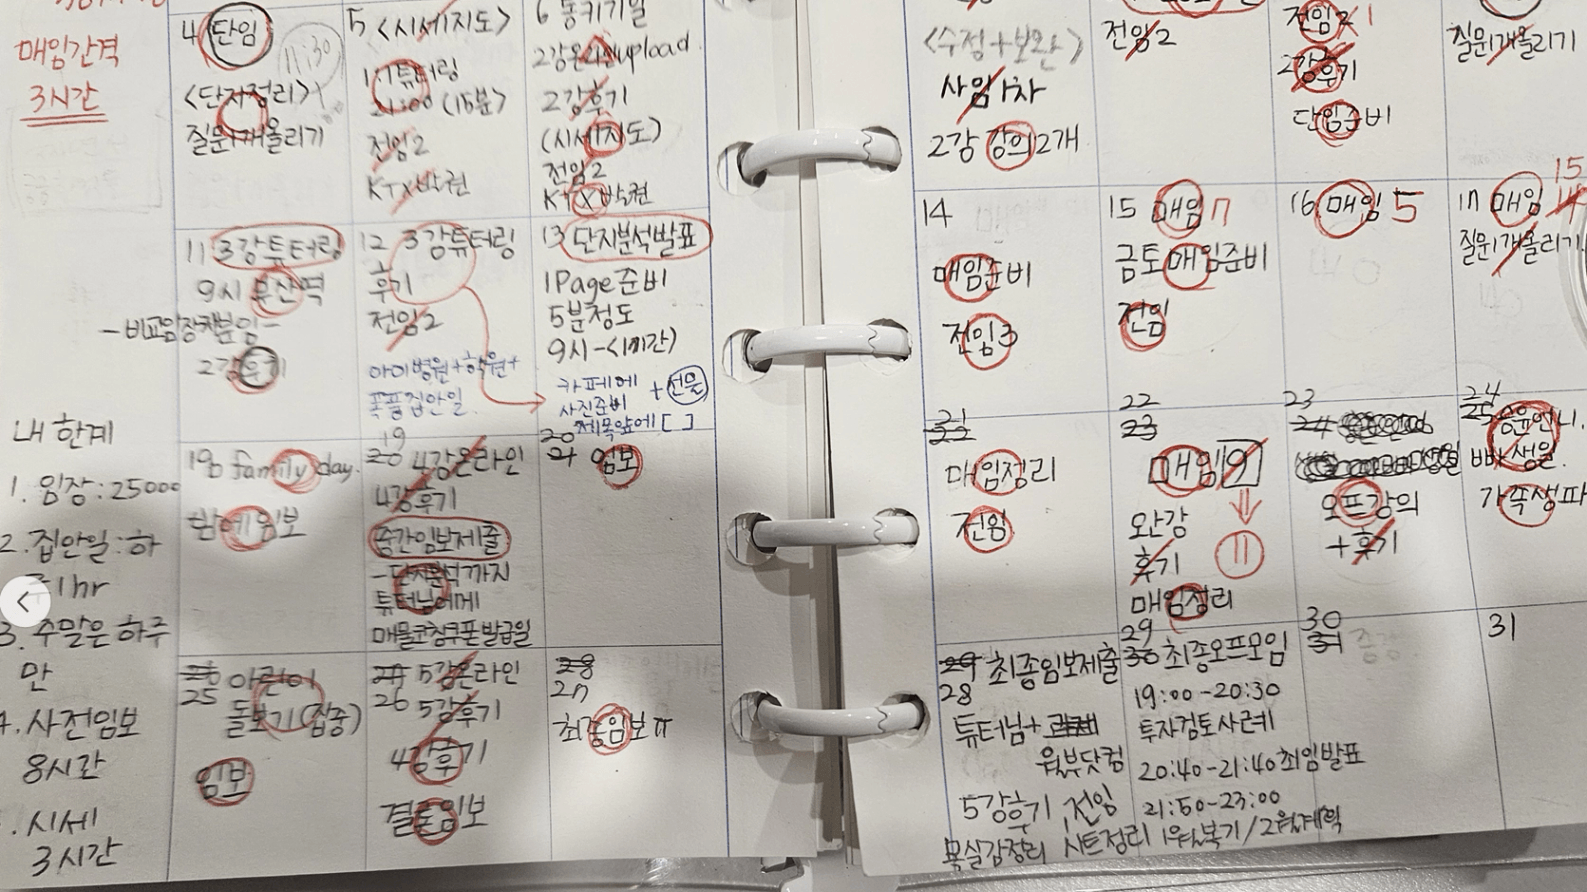 매임간격
3시간
내 한계
1. 임장 : 25000
2. 집안일 : 하
루 1hr
3. 주말은 하루
만
4. 사전임보
8시간
시세
3시간
4 단임
11:30
<단지정리>
질문1개올리기
5 <시세지도>
1:1튜터링
21:00 (15분)
전임2
KTX박권
6 동키기일
2강온라인upload
2강후기
(시세지도)
전임2
KTX박권
<수정+보완>
사임1차
2강 강의2개
전임2
전임2 1
2강후기
단임준비
질문1개올리기
11 3강튜터링
9시 부산역
-비교임장차분임-
2강후기
12 3강튜터링
후기
전임2
아이병원+학원+
폭풍집안일
13 단지분석발표
1Page 준비
5분정도
9시-(1시간)
카페에 + 선물
사진준비
제목앞에 [ ]
14
매임준비
전임3
15 매임 7
금토매임준비
전임
16 매임 5
17 매임 14 15
질문1개올리기
18 family day
밤에임보
19
20 4강온라인
4강후기
중간임보제출
-단지분석까지
튜터님에게
매물코칭쿠폰발급일
20
21 임보
21
22
매임정리
전임
22
23
매임 9
⇓
11
오안강
후기
매임정리
23
24
오프강의
+후기
24
25
빠 생일
가족생파
26 어린이
25 돌보기(집중)
임보
27 5강온라인
26 5강후기
4강후기
결론임보
28
27
최종임보
29 최종임보제출
28
튜터님+과제
월부닷컴
5강후기, 전임
목실감정리 시트정리 1월복기/2월계획
29
30 최종오프모임
19:00-20:30
투자검토사례
20:40-21:40 최임발표
21:50-23:00
30
31
31